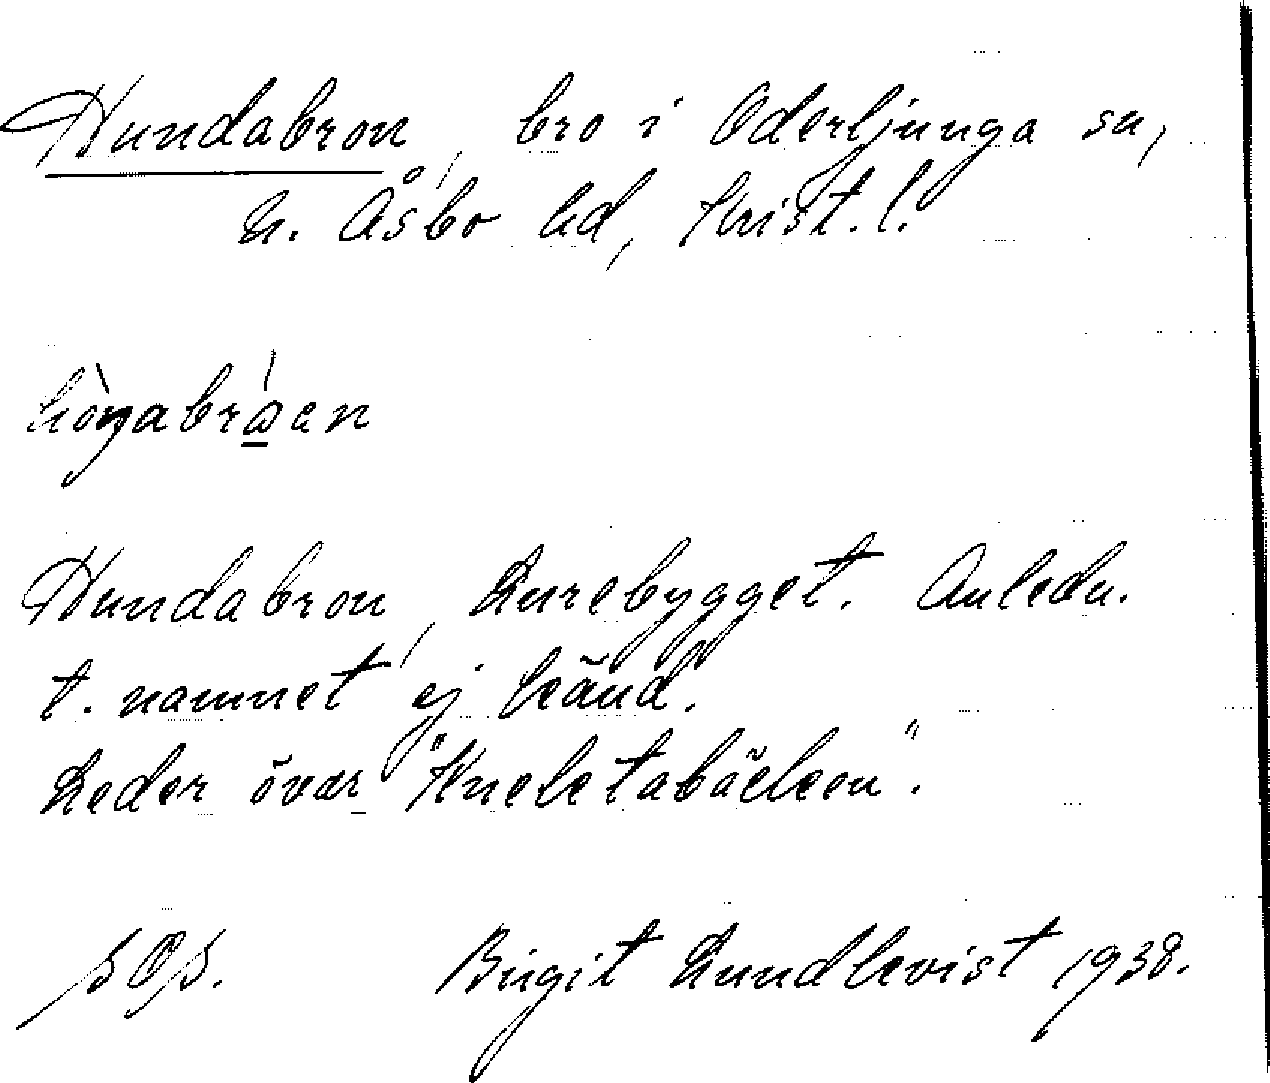 Hundabron, bro i Oderljunga sn,
N. Åsbo hd, Krist. l.
Hundabron, Lurebygget. Anledn.
t. namnet ej känd.
Leder över "Knektabäcken".
Birgit Lundkvist 1938.